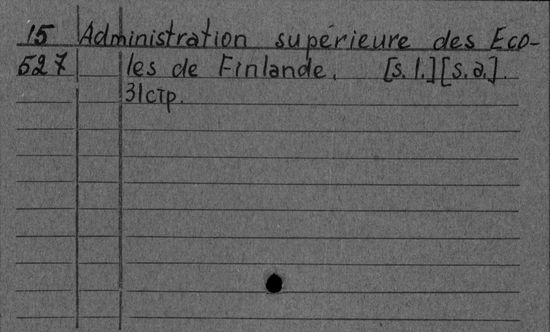 15 Administration supérieure des Eco-
527 les de Finlande. [s.l.][s.a.].
31стр.